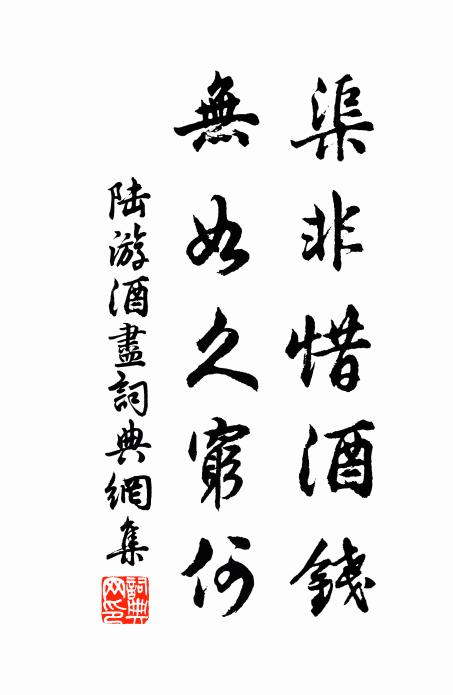 渠非惜酒錢
無如久窮何
陸游酒盡詞典網集
詞典網印